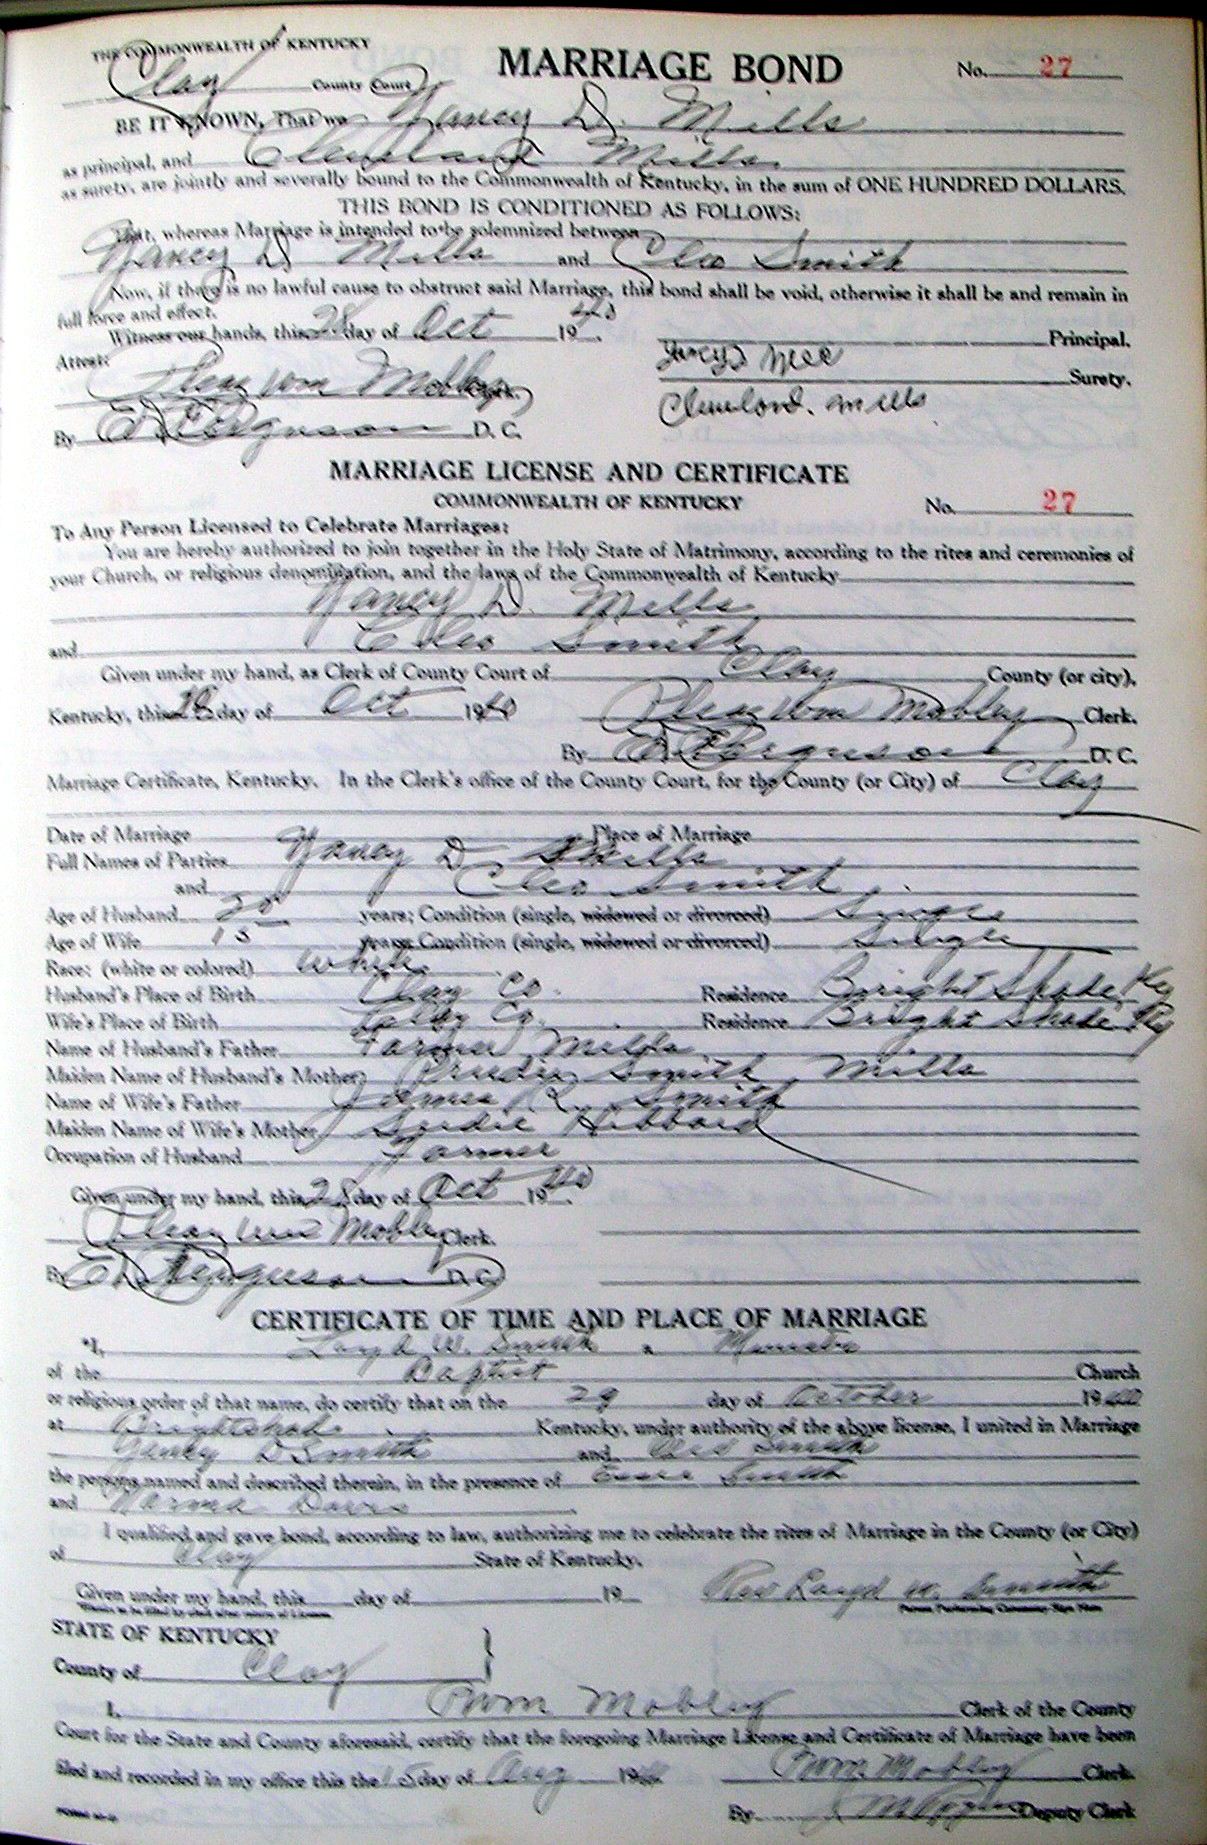 THE COMMONWEALTH OF KENTUCKY
MARRIAGE BOND
No. 27
Clay County Court
BE IT KNOWN, That we Nancy D. Mills
as principal, and Cleveland Mills
as surety, are jointly and severally bound to the Commonwealth of Kentucky, in the sum of ONE HUNDRED DOLLARS.
THIS BOND IS CONDITIONED AS FOLLOWS:
That, whereas Marriage is intended to be solemnized between
Nancy D Mills and Cleo Smith
Now, if there is no lawful cause to obstruct said Marriage, this bond shall be void, otherwise it shall be and remain in
full force and effect.
Witness our hands, this 28 day of Oct 1940.
Principal.
Attest:
Surety.
Wm Mobley Clerk.
Cleveland. Mills
By Ferguson D. C.
MARRIAGE LICENSE AND CERTIFICATE
COMMONWEALTH OF KENTUCKY
No. 27
To Any Person Licensed to Celebrate Marriages:
You are hereby authorized to join together in the Holy State of Matrimony, according to the rites and ceremonies of
your Church, or religious denomination, and the laws of the Commonwealth of Kentucky
Nancy D. Mills
and Cleo Smith
Given under my hand, as Clerk of County Court of Clay County (or city),
Kentucky, this 28 day of Oct 1940 Wm Mobley Clerk.
By Ferguson D. C.
Marriage Certificate, Kentucky. In the Clerk's office of the County Court, for the County (or City) of Clay
Date of Marriage Place of Marriage
Full Names of Parties Nancy D Mills
and Cleo Smith
Age of Husband 20 years; Condition (single, widowed or divorced) Single
Age of Wife 15 years; Condition (single, widowed or divorced) Single
Race: (white or colored) White
Husband's Place of Birth Clay Co. Residence Bright Shade, Ky
Wife's Place of Birth Clay Co. Residence Bright Shade Ky
Name of Husband's Father Farmer Mills
Maiden Name of Husband's Mother Smith Mills
Name of Wife's Father James R. Smith
Maiden Name of Wife's Mother Hibbard
Occupation of Husband Farmer
Given under my hand, this 28 day of Oct 1940.
Wm Mobley Clerk.
By Ferguson D. C.
CERTIFICATE OF TIME AND PLACE OF MARRIAGE
*I, Loyd W. Smith a Minister
of the Baptist Church
or religious order of that name, do certify that on the 29 day of October 1940
at Brightshade Kentucky, under authority of the above license, I united in Marriage
D Smith and Cleo Smith
the persons named and described therein, in the presence of Smith
and Norma Davis
I qualified and gave bond, according to law, authorizing me to celebrate the rites of Marriage in the County (or City)
of Clay State of Kentucky.
Given under my hand, this day of 19 Rev Loyd W. Smith
Person Performing Ceremony Sign Here
STATE OF KENTUCKY
County of Clay
I, Wm Mobley Clerk of the County
Court for the State and County aforesaid, certify that the foregoing Marriage License and Certificate of Marriage have been
filed and recorded in my office this the 15 day of Aug 19 Wm Mobley Clerk.
By Deputy Clerk